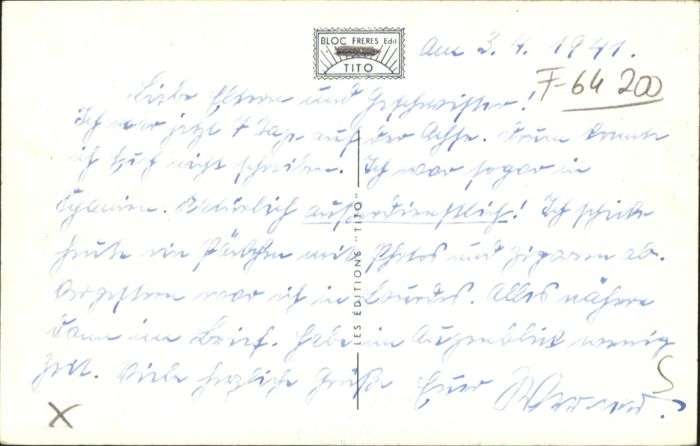 BLOC FRERES Edit
TITO
Am 3.4.1941.
F-64 200
Liebe Eltern und Geschwister!
Ich war jetzt 7 Tage auf der Achse. Drum konnte
ich Euch nicht schreiben. Ich war sogar in
Spanien. Natürlich außerdienstlich! Ich schicke
heute ein Päckchen mit Photos und Zigarren ab.
Vorgestern war ich in Lourdes. Alles nähere
dann im Brief. Habe im Augenblick wenig
Zeit. Viele herzliche Grüße Euer
LES ÉDITIONS "TITO"
X